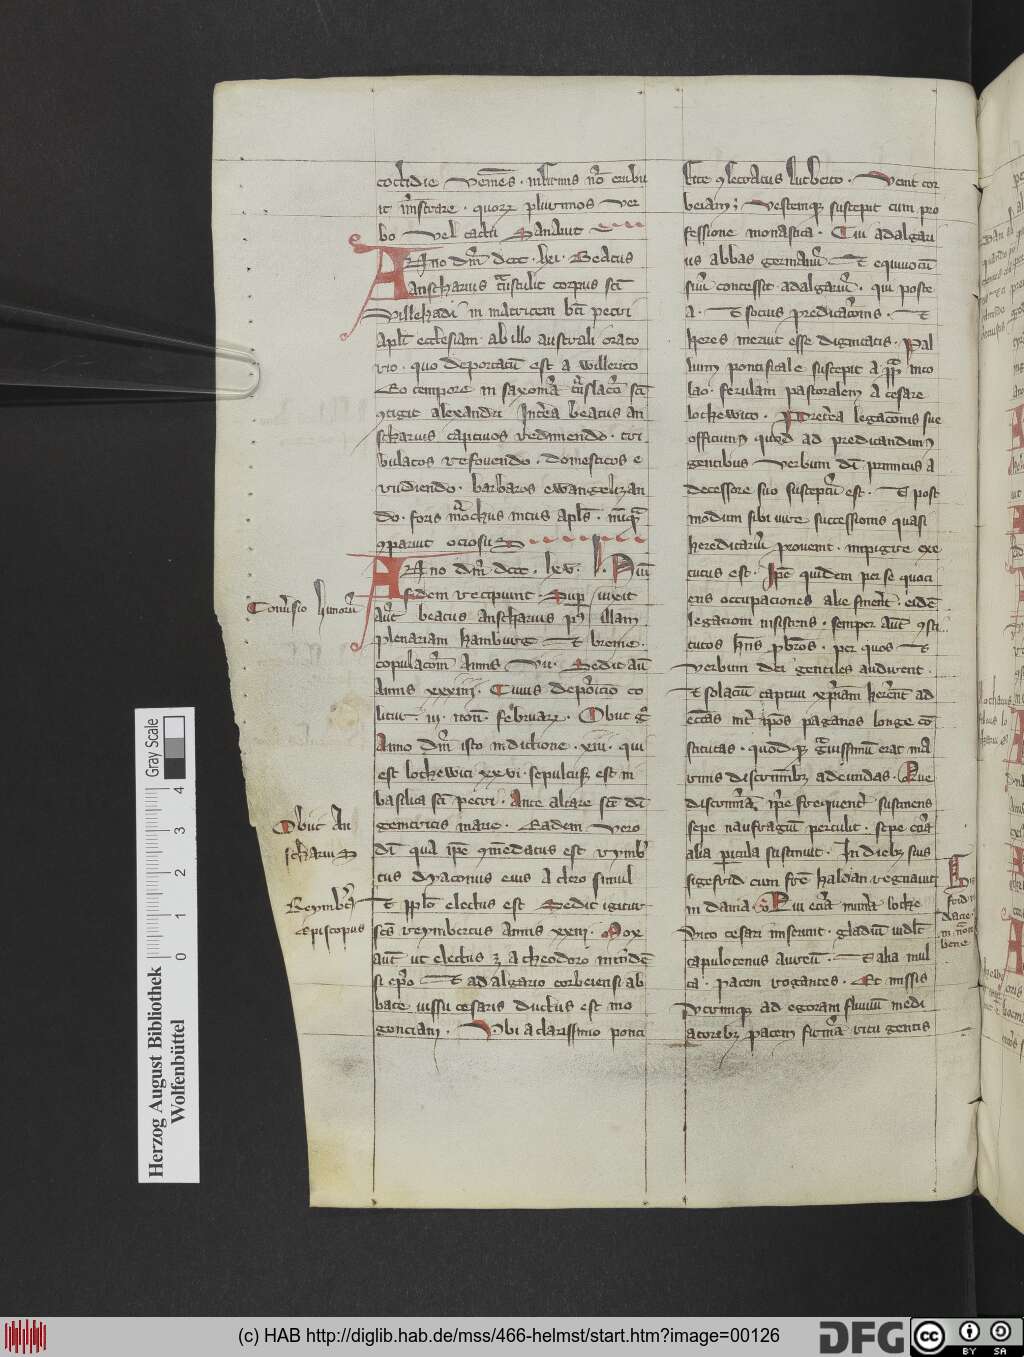 cottidie veniens · infirmis non erubu
it ministrare · quorum plurimos ver
bo vel tactu Sanavit
Anno dni dccc · lxi · Beatus
Anscharius transtulit corpus sci
Villehadi in matricem bti petri
apli ecclesiam ab illo australi orato
rio · quo deportatum est a willerico
Eo tempore in saxonia translatio sci
contigit alexandri Interea beatus an
scharius captivos redimendo · tri
bulatos refovendo · domesticos e
rudiendo · barbaros ewangelizan
do · foris monachus intus apls · numquam
comparuit ociosus
Anno dni dccc · lxv ·
fidem recipiunt · Super vixit
aut beatus anscharius post illam
plenariam hamburg Et breme ·
copulacom annis vii · Sedit aut
annis xxxiiii · Cuius deposicio co
litur · iii · non · februarii · Obiit go
Anno dni isto indictione · xiii · qui
est lodewici xxvi · sepultusque est in
basilica sci petri · Ante altare sce dei
genitricis marie · Eadem vero
die qua ipe comendatus est rymber
tus dyaconus eius a clero simul
Et pplo electus est Sedit igitur
scs reymbertus annis xxiii · Mox
aut ut electus est a theodoro minde
si epo Et adalgario corbeiensi ab
bate iussu cesaris ductus est mo
gonciam · Ubi a clarissimo ponti
Conversio hunorum
Obiit An
scharius
Reymbertus
Episcopus
fice consecratus lutberto · Venit cor
beiam · Vestemque suscepit cum pro
fessione monastica · Cui adalgari
us abbas germanum Et equivocum
suum concessit adalgarium · qui poste
a · Et socius predicacionis · Et
heres meruit esse dignitatis · Pal
lium pontificale suscepit a papa nico
lao · ferulam pastoralem a cesare
lodhewico · Preterea legacionis sue
officium quod ad predicandum
gentibus verbum dei primitus a
decessore suo susceptum est · Et post
modum sibi iure successionis quasi
hereditarium provenit · impigre exe
cutus est · Ipe quidem per se quoci
ens occupaciones alie sinerent eidem
legationi insistens · semper aut consti
tutos hns pbros · per quos Et
verbum dei gentiles audirent ·
Et solacium captivi xpiani haberent ad
eccas inter ipos paganos longe con
stitutas · quodque gravissimum erat ma
rinis discriminibz adeundas · Que
discrimina ipe frequenter sustinens
sepe naufragium pertulit · sepe eciam
alia pericula sustinuit · In diebz suis
sigefrid cum fre haldan regnavit
in dania · Qui eciam munera lodhe
vico cesari miserunt · gladium videlicet
capulotenus aureum · Et alia mul
ta · pacem rogantes · Et missis
Utrimque ad egoram fluvium medi
atoribz pacem firmam ritu gentis
frid
dacie
Herzog August Bibliothek
Wolfenbüttel
Gray Scale
0 1 2 3 4
(c) HAB http://diglib.hab.de/mss/466-helmst/start.htm?image=00126
DFG
cc BY SA